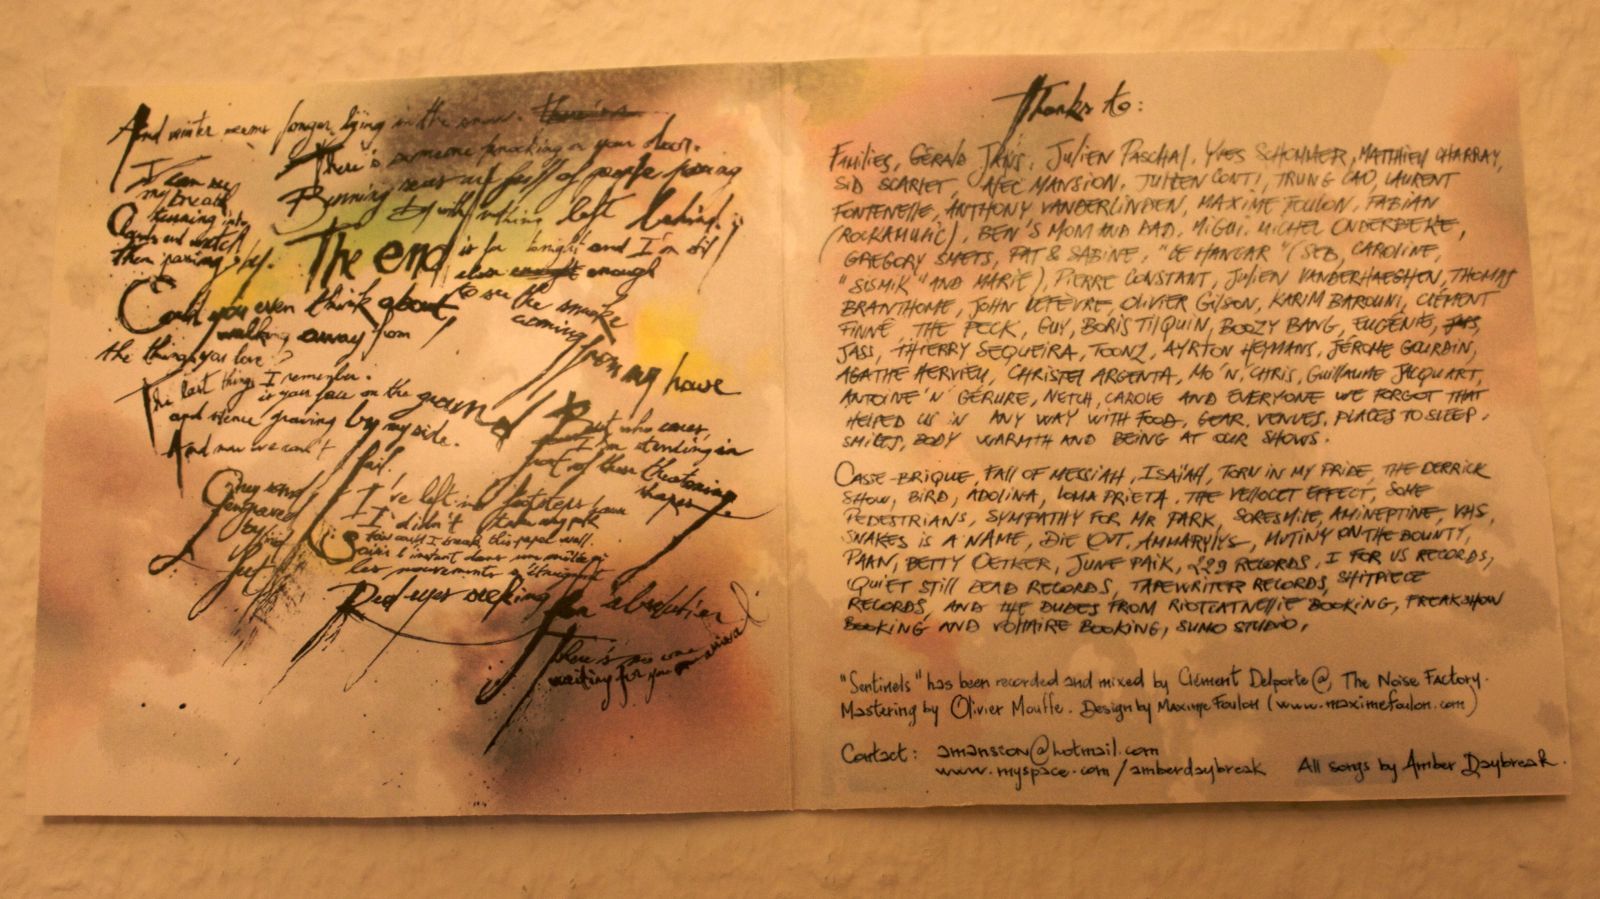 And winter seems longer lying in the snow.
There's someone knocking on your door.
Running seas are full of people passing
by with nothing left behind.
I can see
my breath
running into
clouds and watch
them passing by.
The end is far tonight and I'm still
close enough
to see the smoke
coming
from my house
Could you even think about
walking away from
the things you love?
The last things I remember
is your face on the ground
and silence growing by my side.
And now we can't
fail.
But who cares,
I'm standing in
front of these threatening
shapes
Grey sand
engraved
by
I've left no footsteps
I didn't turn my
How could I break this paper wall.
Saisis l'instant dans un
les mouvements s'éloignent
Red eyes seeking for absolution
There's no one
waiting for you
Thanks to:
Families, Gérald Jans, Julien Paschal, Yves Schommer, Matthieu Charray,
Sid Scarlet, Alec Mansion, Julien Conti, Trung Cao, Laurent
Fontenelle, Anthony Vanderlinden, Maxime Foulon, Fabian
(Rockamusic), Ben's mom and dad, Migui, Michel Onderbeke,
Gregory Smets, Pat & Sabine, "Le Hangar" (Seb, Caroline,
"Sismik" and Marie), Pierre Constant, Julien Vanderhaeghen, Thomas
Branthome, John Lefèvre, Olivier Gilson, Karim Barouni, Clément
Finné, The Peck, Guy, Boris Tilquin, Boozy Bang, Eugénie,
Jass, Thierry Sequeira, Toonz, Ayrton Heymans, Jérôme Gourdin,
Agathe Hervieu, Christel Argenta, Mo'n, Chris, Guillaume Jacquart,
Antoine 'n' Gérure, Netch, Carole and everyone we forgot that
helped us in any way with food, gear, venues, places to sleep,
smiles, body warmth and being at our shows.
Casse Brique, Fall of Messiah, Isaïah, Torn in my Pride, The Derrick
Show, Bird, Adolina, Loma Prieta, The Vellocet Effect, Some
Pedestrians, Sympathy for Mr Park, Soresmile, Amineptine, VHS,
Snakes is a name, Die Out, Ammarylys, Mutiny on the Bounty,
Paan, Betty Oetker, June Paik, 229 Records, I for us Records,
Quiet still dead Records, Tapewriter Records, Shitpiece
Records, and the dudes from Rioteatnellie Booking, Freakshow
Booking and Voltaire Booking, Sumo Studio,
"Sentinels" has been recorded and mixed by Clément Delporte @ The Noise Factory.
Mastering by Olivier Mouffe. Design by Maxime Foulon (www.maximefoulon.com)
Contact: amansion@hotmail.com
www.myspace.com/amberdaybreak All songs by Amber Daybreak.